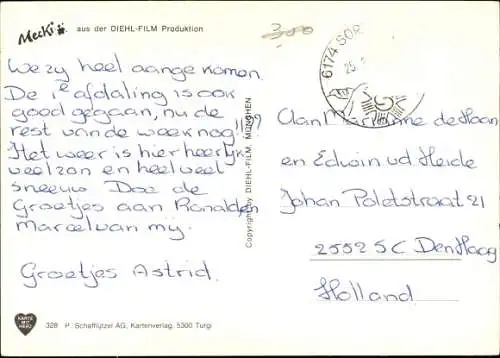 Mecki aus der DIEHL-FILM Produktion
300
6174 SÖR
25.
We zy heel aangekomen.
De 1e afdaling is ook
good gegaan, nu de
rest van de week nog!!!??
Het weer is hier heerlijk
veel zon en heel veel
sneeuw Doe de
Groetjes aan Ronald en
Marcel van mij.
Groetjes Astrid.
Copyright by DIEHL-FILM, MÜNCHEN
Aan Marianne de Haan
en Edwin vd Heide
Johan Poletstraat 21
2552 SC Den Haag
Holland
KARTE MIT HERZ
328 P. Schafflützel AG, Kartenverlag, 5300 Turgi